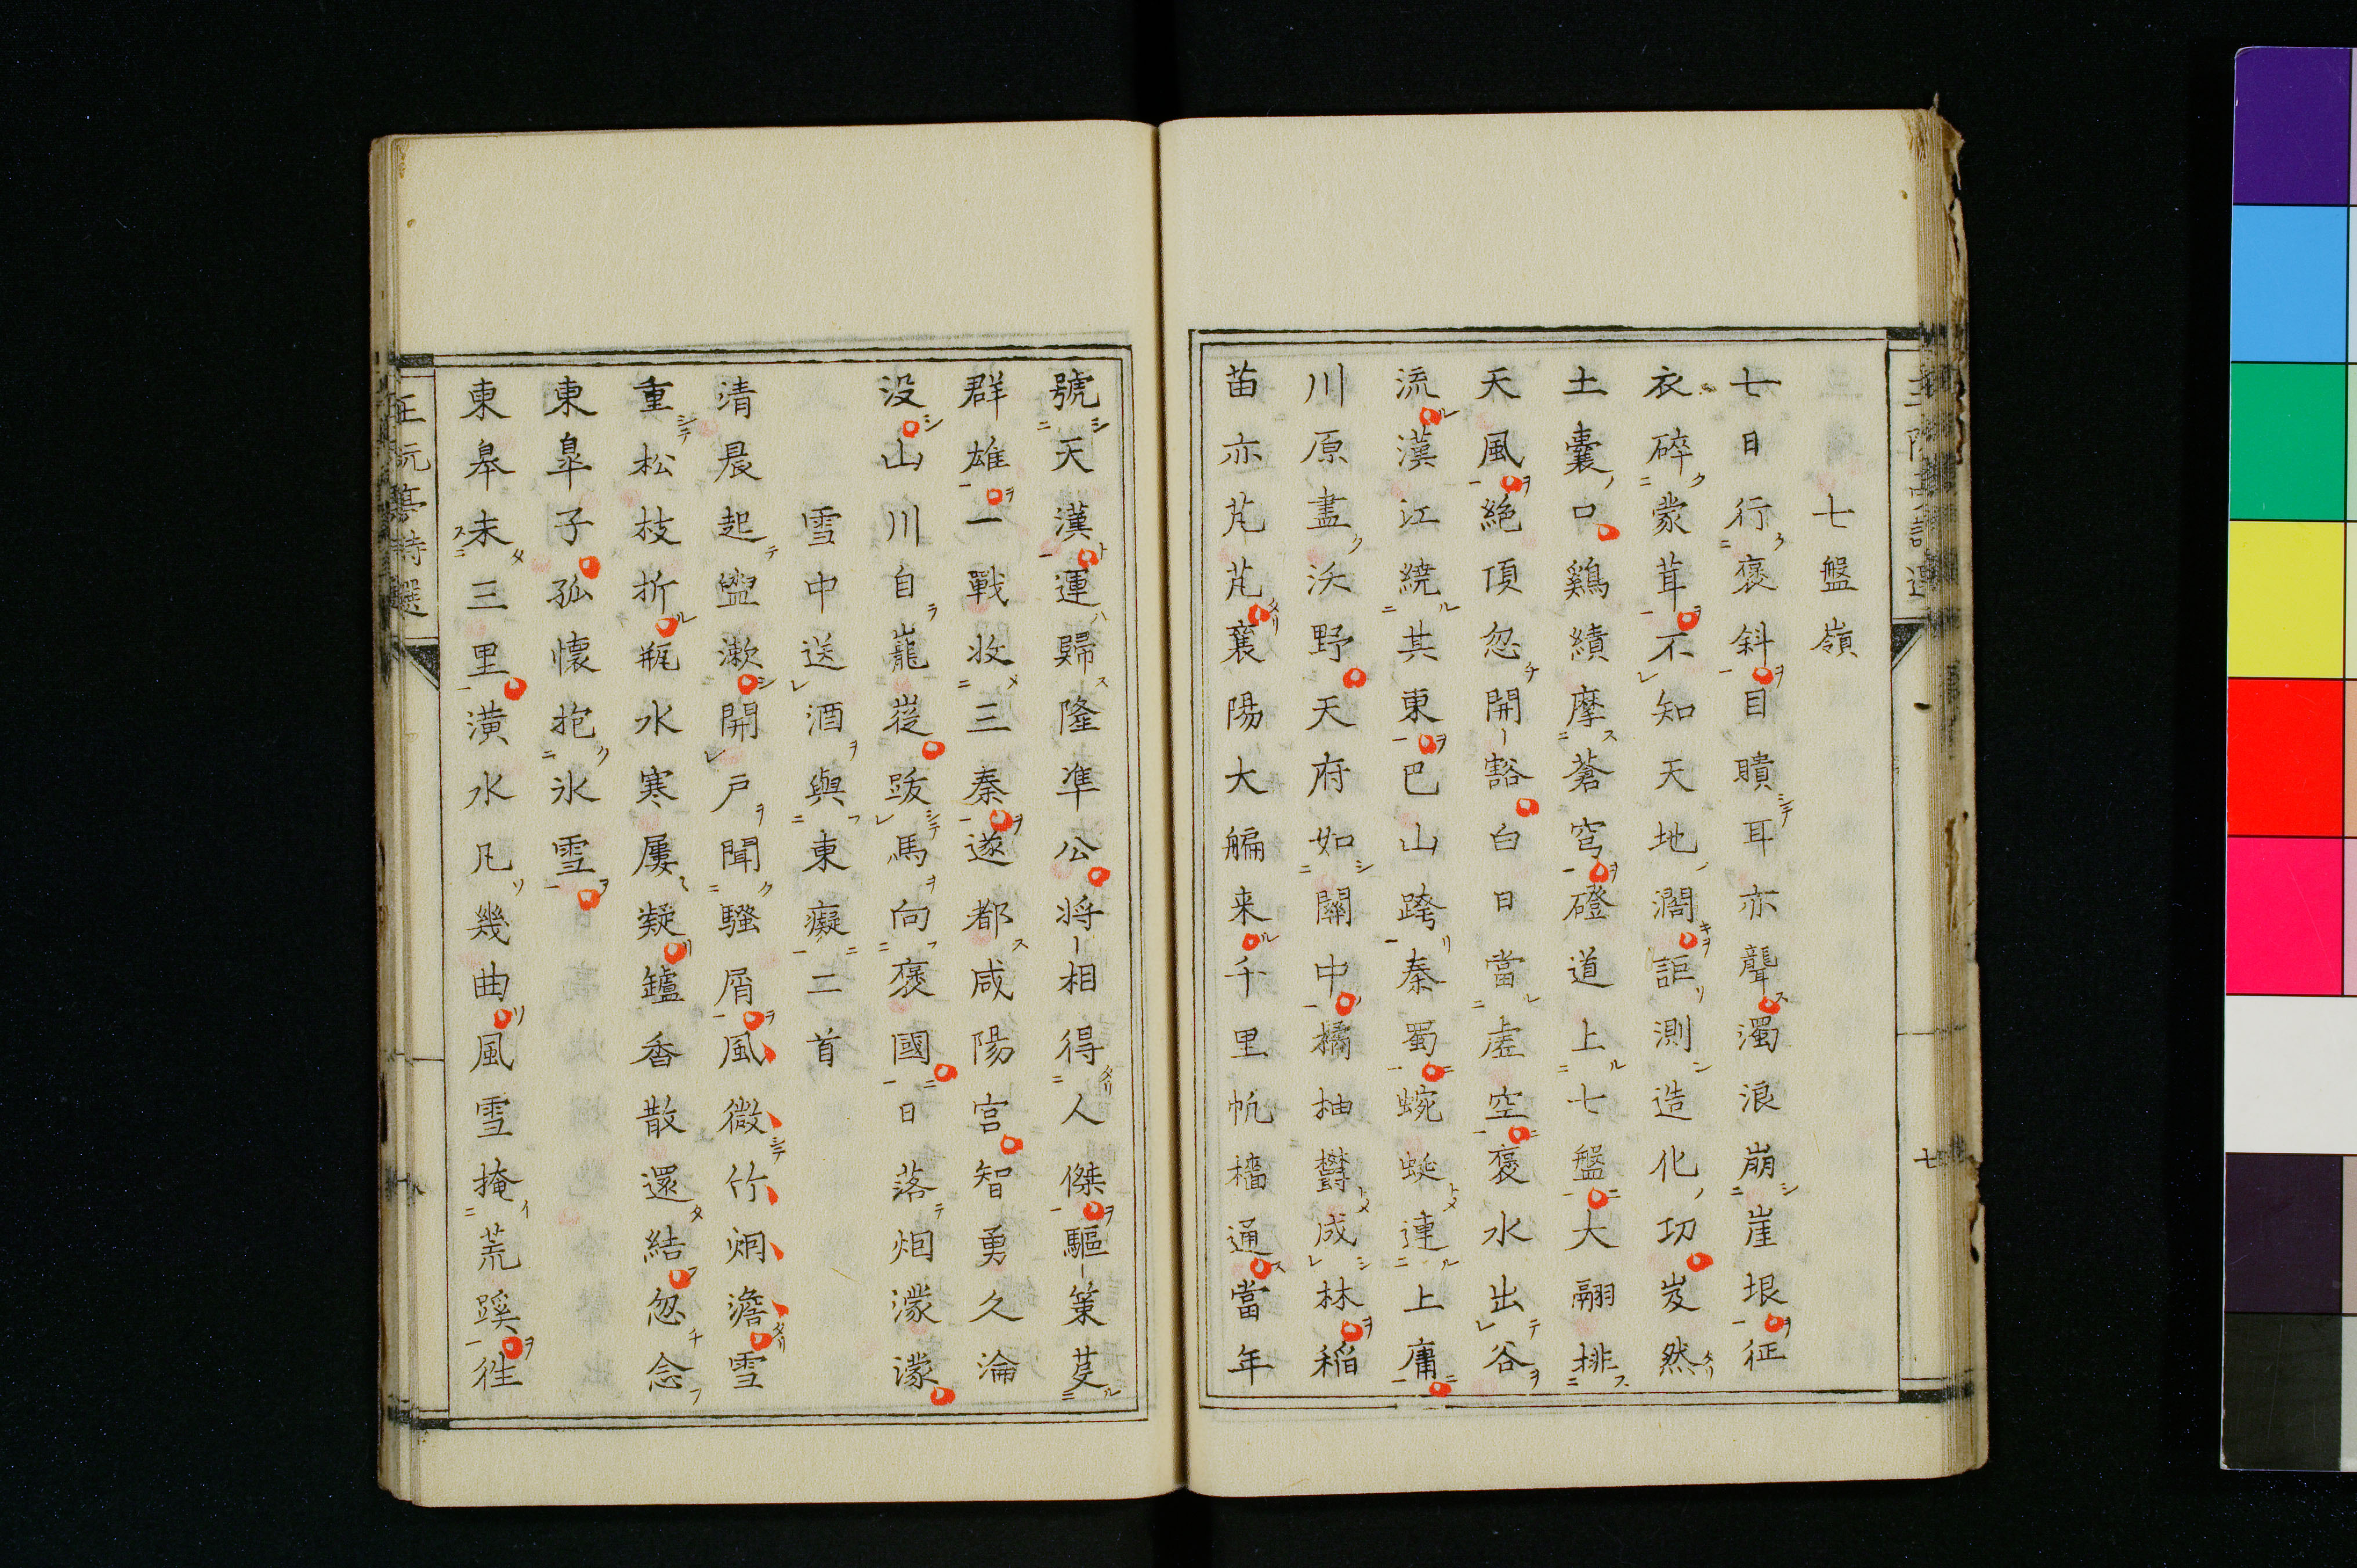 七盤嶺
七日行褒斜目瞶耳亦聾濁浪崩崖垠征
衣碎蒙茸不知天地濶詎測造化功岌然
土囊口鷄績摩蒼穹磴道上七盤大翮排
天風絶頂忽開豁白日當虛空褒水出谷
流漢江繞其東巴山跨秦蜀蜿蜒連上庸
川原盡沃野天府如關中橘柚欝成林稲
苗亦芃芃襄陽大艑来千里帆檣通當年
號天漢運歸隆準公将相得人傑驅策芟
群雄一戰收三秦遂都咸陽宮智勇久淪
没山川自巃嵷跋馬向褒國日落烟濛濛
雪中送酒與東癡二首
清晨起盥漱開戸聞騷屑風微竹烟澹雪
重松枝折瓶水寒屢凝鑪香散還結忽念
東皐子孤懐抱氷雪
東皋未三里潢水凡幾曲風雪掩荒蹊徃
王阮亭詩選
七